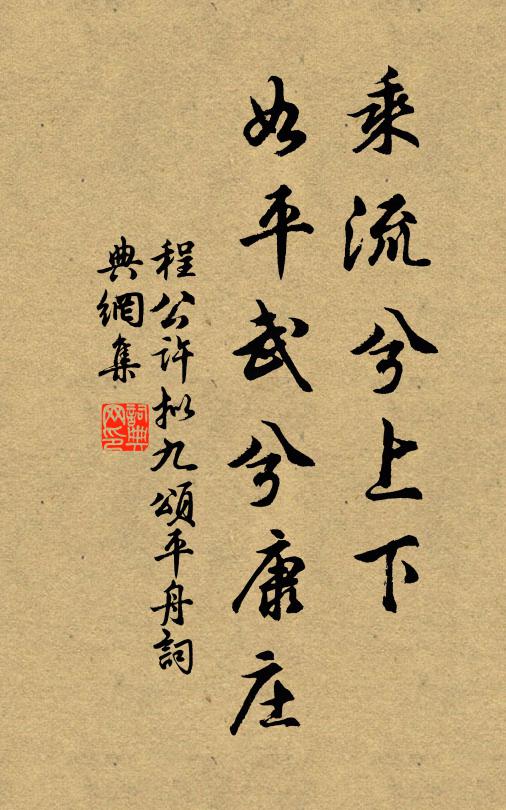 乘流兮上下
如平武兮康庄
程公许拟九頌平舟詞
典網集
詞典网印